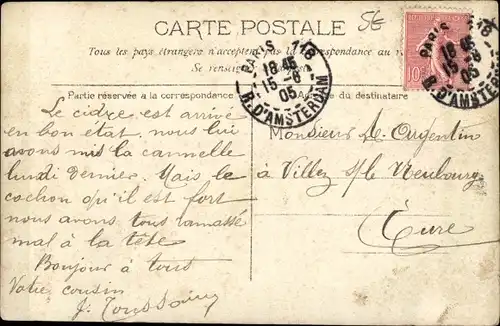 CARTE POSTALE
5E
Tous les pays étrangers n'acceptent pas la correspondance au
Se renseigner
Partie réservée à la correspondance
Adresse du destinataire
PARIS 118
18 45
15-6
05
R. D'AMSTERDAM
PARIS 118
18 45
15-6
05
R. D'AMSTERDAM
10
Le cidre est arrivé
en bon état, nous lui
avons mis la cannelle
lundi dernier. Mais le
cochon qu'il est fort
nous avons tous ramassé
mal à la tête
Bonjour à tous
Votre cousin
J. Toussaint
Monsieur A. Argentin
à Villez s/le Neubourg
Eure